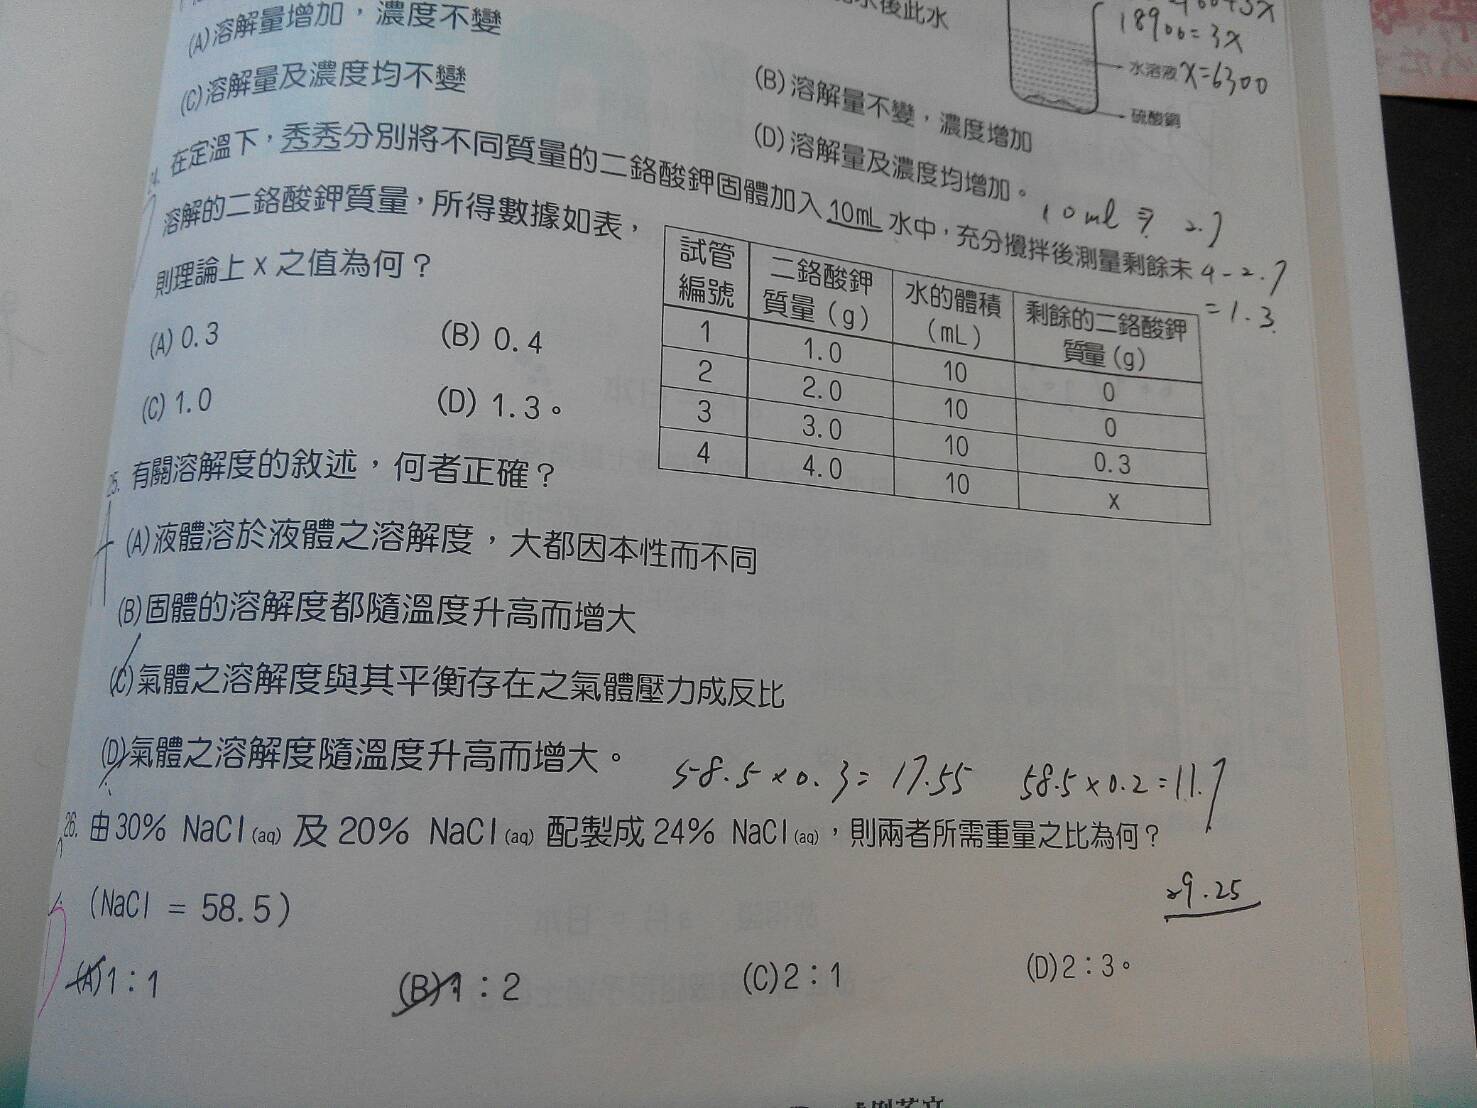 (A)溶解量增加，濃度不變
後此水
(B)溶解量不變，濃度增加
(C)溶解量及濃度均不變
(D)溶解量及濃度均增加。
18900=3x
x=6300
水溶液
硫酸銅
24. 在定溫下，秀秀分別將不同質量的二鉻酸鉀固體加入10mL 水中，充分攪拌後測量剩餘未
溶解的二鉻酸鉀質量，所得數據如表，
則理論上 x 之值為何？
(A) 0.3 (B) 0.4
(C) 1.0 (D) 1.3。
10ml 2.7
4-2.7
=1.3
試管編號 二鉻酸鉀質量（g） 水的體積（mL） 剩餘的二鉻酸鉀質量(g)
1 1.0 10 0
2 2.0 10 0
3 3.0 10 0.3
4 4.0 10 x
25. 有關溶解度的敘述，何者正確？
(A)液體溶於液體之溶解度，大都因本性而不同
(B)固體的溶解度都隨溫度升高而增大
(C)氣體之溶解度與其平衡存在之氣體壓力成反比
(D)氣體之溶解度隨溫度升高而增大。
58.5×0.3=17.55 58.5×0.2=11.7
26. 由30% NaCl(aq) 及 20% NaCl(aq) 配製成 24% NaCl(aq)，則兩者所需重量之比為何？
29.25
(NaCl = 58.5)
(A)1：1 (B)1：2 (C)2：1 (D)2：3。